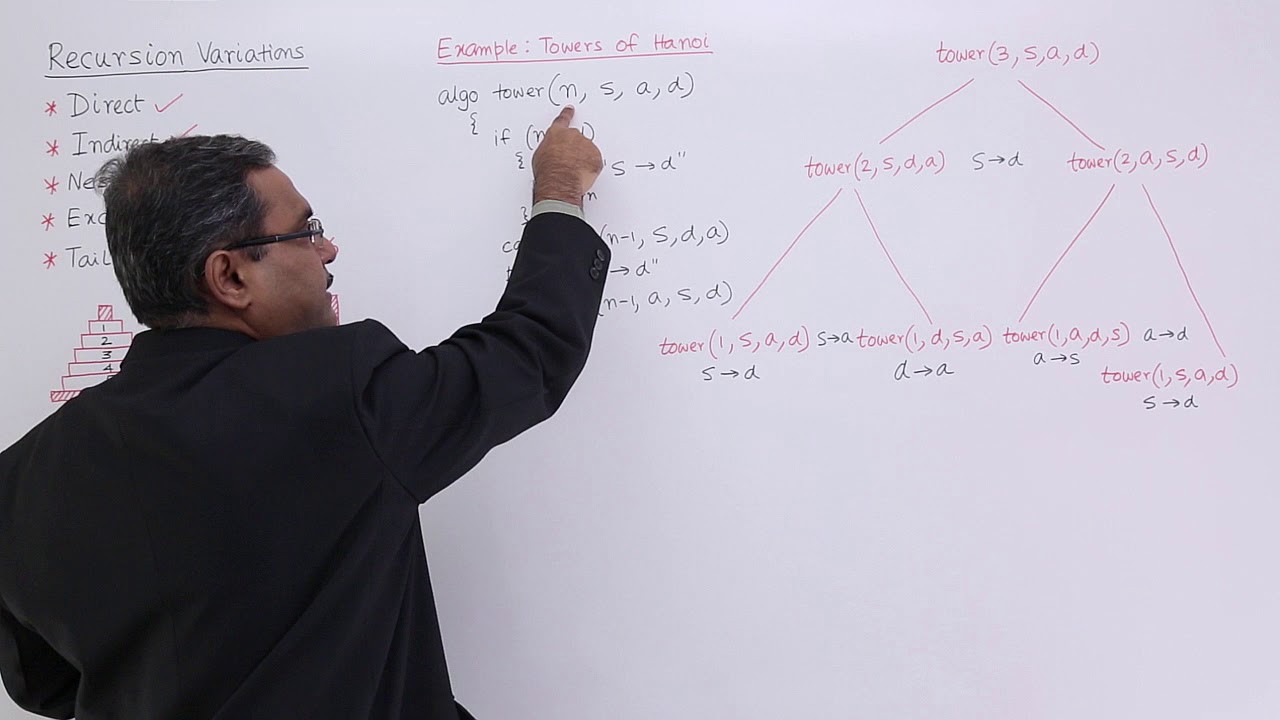 Recursion Variations
* Direct ✓
* Indirect ✓
*
*
* Tail
1
2
3
4
Example: Towers of Hanoi
algo tower(n, s, a, d)
{
if (n
{ "s → d"
}
(n-1, s, d, a)
→ d"
(n-1, a, s, d)
tower(3, s, a, d)
tower(2, s, d, a) s → d tower(2, a, s, d)
tower(1, s, a, d) s → a tower(1, d, s, a) tower(1, a, d, s) a → d
s → d d → a a → s
tower(1, s, a, d)
s → d